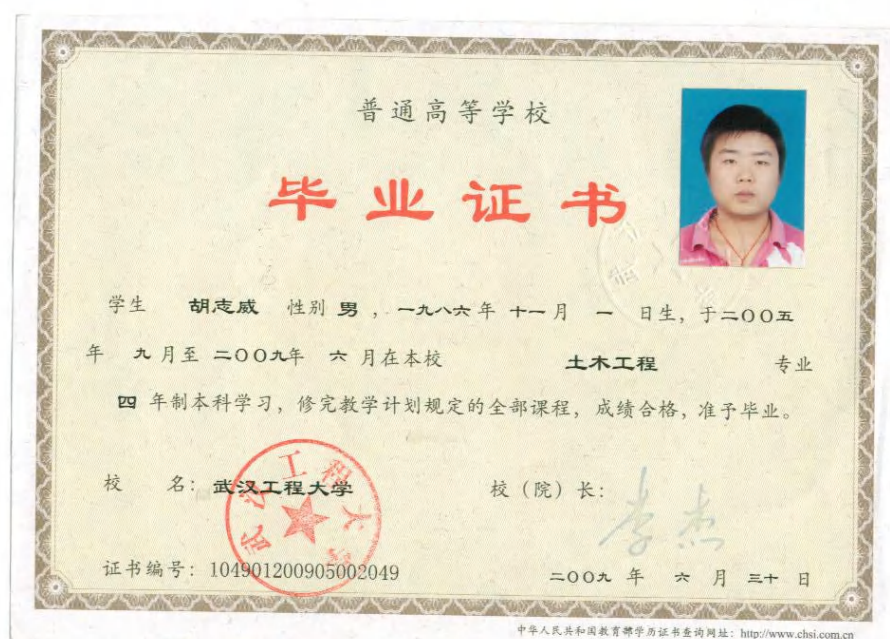 普通高等学校
毕业证书
学生 胡志威 性别 男 ，一九八六 年 十一 月 一 日生，于二〇〇五
年 九 月至 二〇〇九年 六 月在本校 土木工程 专业
四 年制本科学习，修完教学计划规定的全部课程，成绩合格，准予毕业。
校 名：武汉工程大学 校（院）长：李杰
武汉工程大学
证书编号：104901200905002049 二〇〇九 年 六 月 三十 日
中华人民共和国教育部学历证书查询网址：http://www.chsi.com.cn